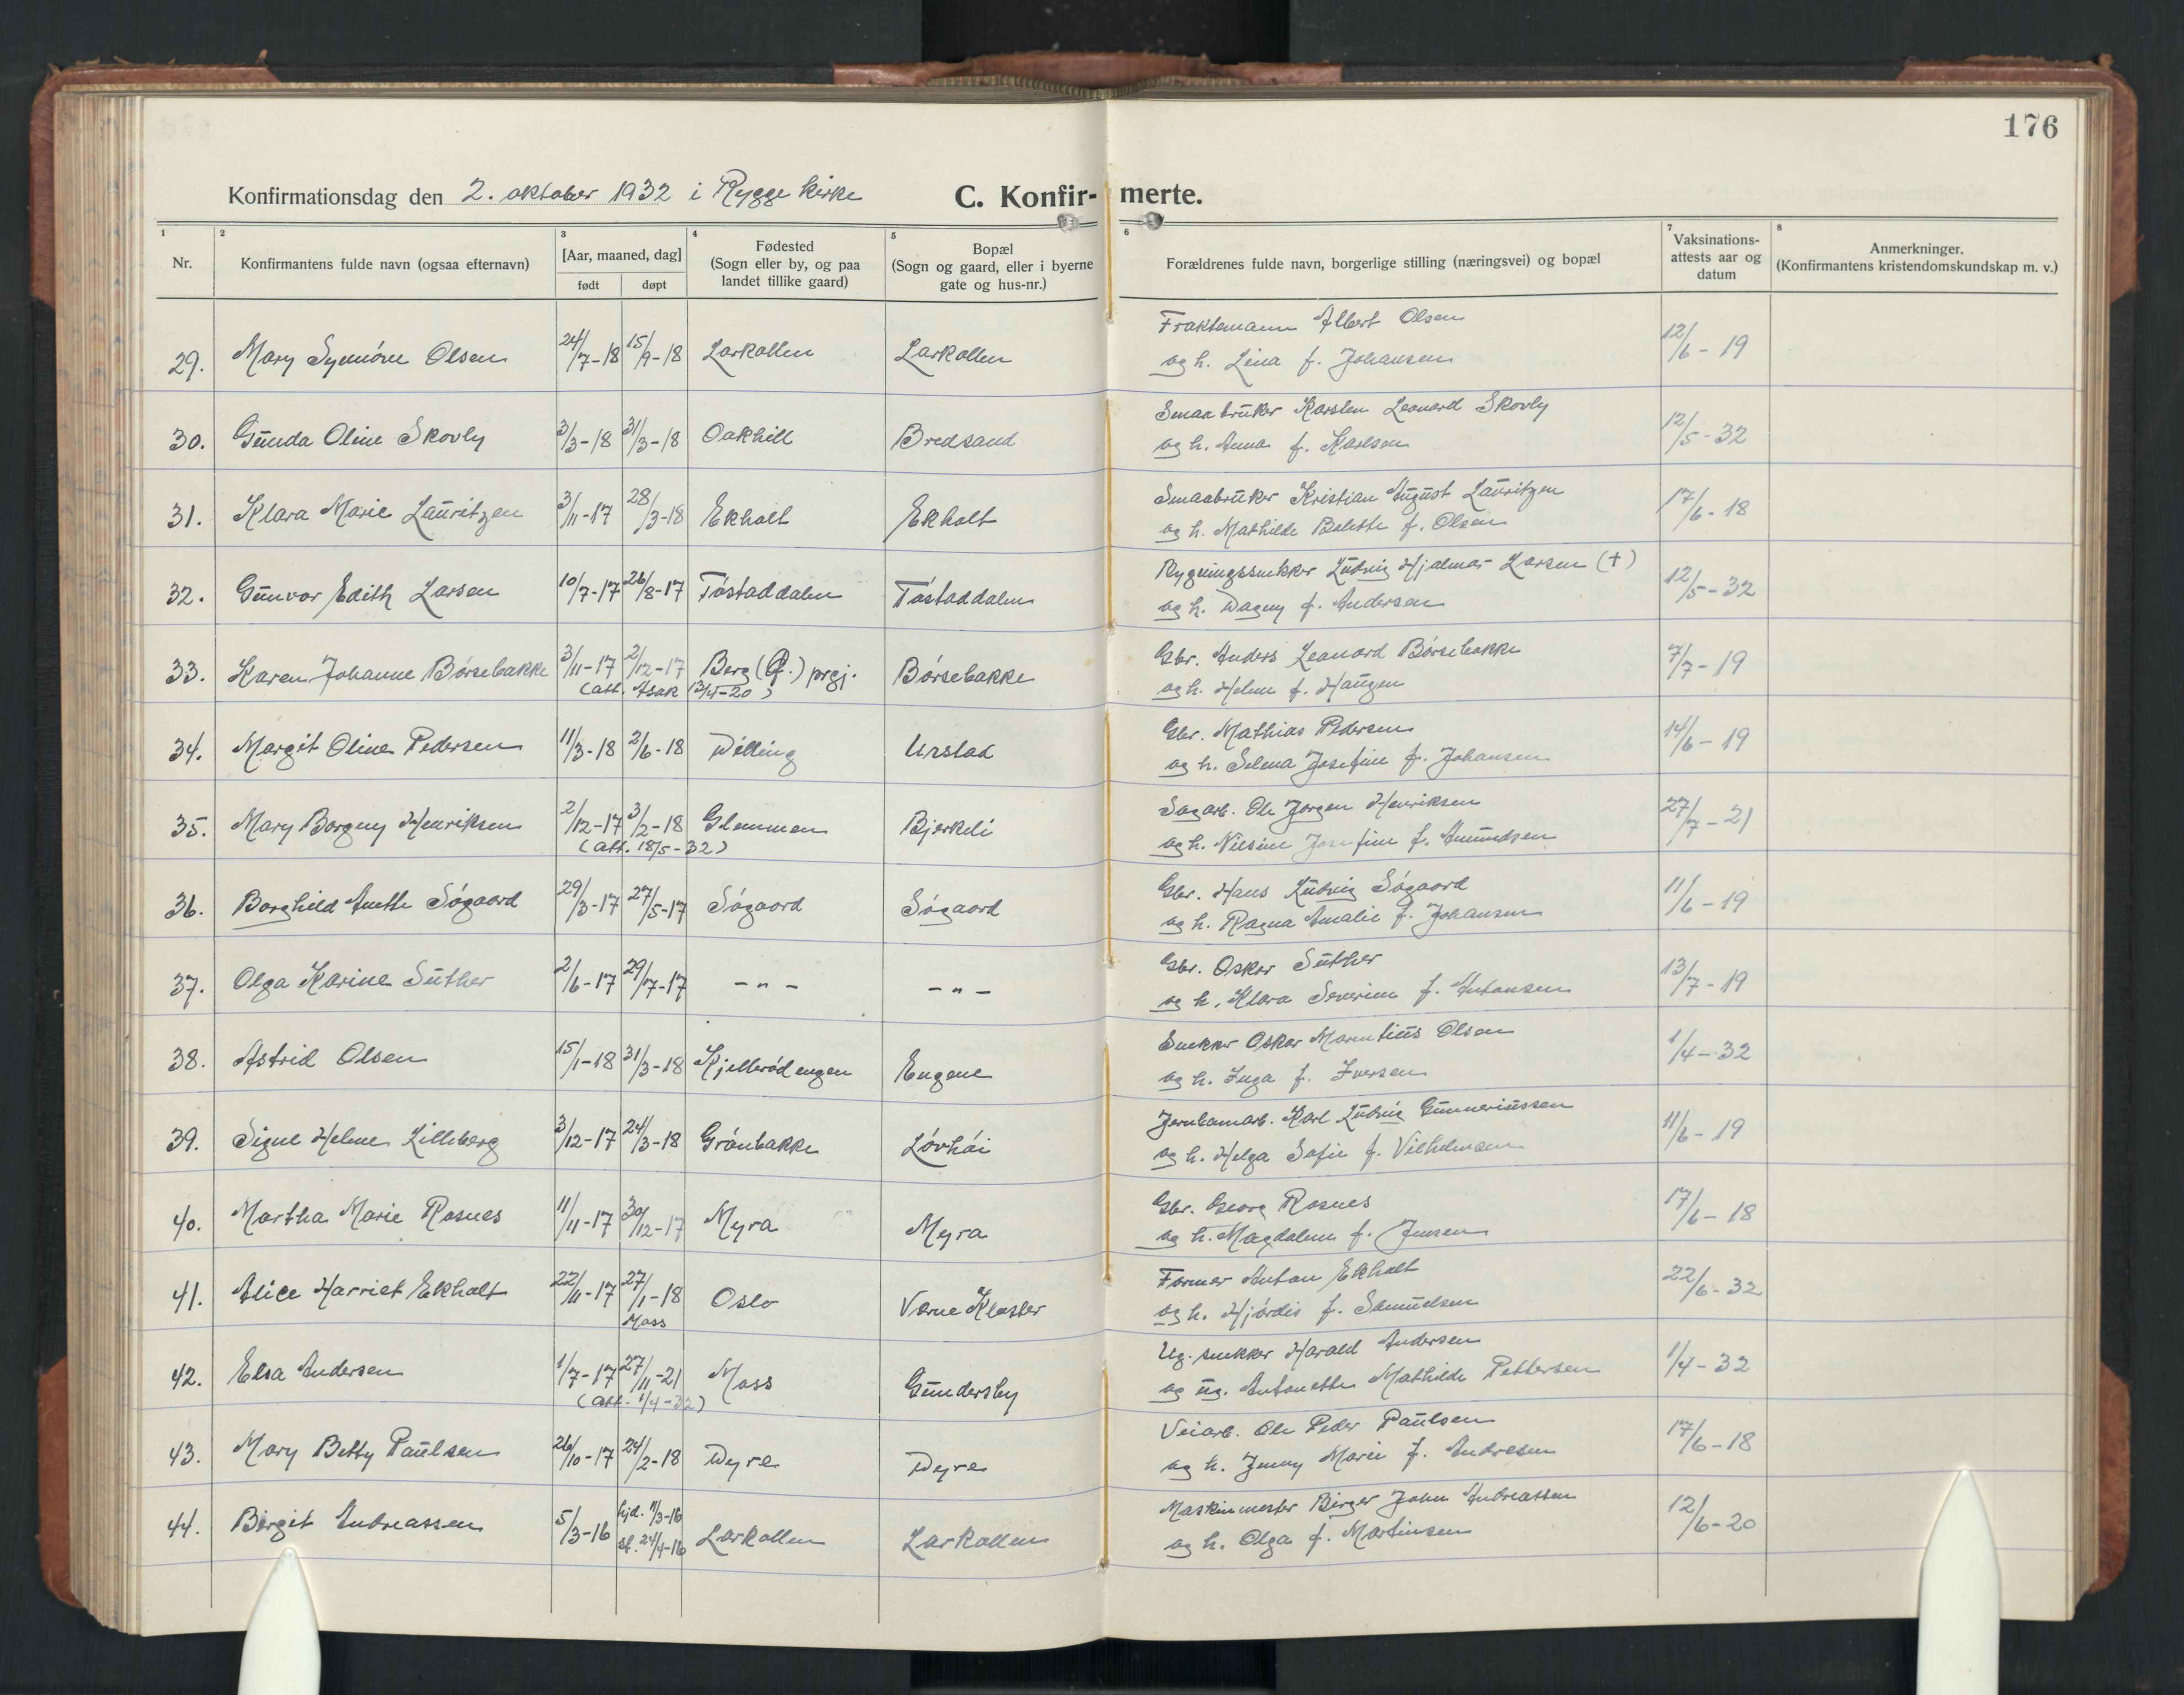 176
Konfirmationsdag den 2. oktober 1932 i Rygge kirke
C. Konfir- merte.
1 2 3 4 5 6 7 8
Nr.
Konfirmantens fulde navn (ogsaa efternavn)
[Aar, maaned, dag]
født døpt
Fødested
(Sogn eller by, og paa
landet tillike gaard)
Bopæl
(Sogn og gaard, eller i byerne
gate og hus-nr.)
Forældrenes fulde navn, borgerlige stilling (næringsvei) og bopæl
Vaksinations-
attests aar og
datum
Anmerkninger.
(Konfirmantens kristendomskundskap m. v.)
29. Mary Synnöve Olsen 24/7-18 15/9-18 Larkollen Larkollen
Fraktemann Albert Olsen
og h. Lina f. Johansen
12/6-19
30. Gunda Oline Skovly 3/3-18 31/3-18 Oakhill Bredsand
Smaabruker Karsten Leonard Skovly
og h. Anna f. Karlsen
12/5-32
31. Klara Marie Lauritzen 3/11-17 28/3-18 Ekholt Ekholt
Smaabruker Kristian August Lauritzen
og h. Mathilde f. Olsen
17/6-18
32. Gunvor Edith Larsen 10/7-17 26/8-17 Föstaddalen Töstaddalen
Bygningssnekker Ludvig Hjalmar Larsen (†)
og h. Dagny f. Andersen
12/5-32
33. Karen Johanne Börsebakke 3/11-17 2/12-17 Berg ( ) prgj. Börsebakke
(att. Asak 13/4-20)
Gbr. Anders Leonard Börsebakke
og h. Helene f. Haugen
7/7-19
34. Margit Oline Pedersen 11/3-18 2/6-18 Dilling Urstad
Gbr. Mathias Pedersen
og h. Selma Josefine f. Johansen
14/6-19
35. Mary Borgny Henriksen 2/12-17 3/2-18 Glemmen Bjerkeli
(att. 18/5-32)
Sagarb. Ole Jørgen Henriksen
og h. Nilsine Josefine f. Amundsen
27/7-21
36. Borghild Anette Sögaard 29/3-17 27/5-17 Sögaard Sögaard
Gbr. Hans Ludvig Sögaard
og h. Ragna Amalie f. Johansen
11/6-19
37. Olga Karine Suther 2/6-17 29/7-17 - " - - " -
Gbr. Oskar Suther
og h. Klara Severine f. Antonsen
13/7-19
38. Astrid Olsen 15/1-18 31/3-18 Kjellerödengen Engene
Snekker Oskar Marentius Olsen
og h. Inga f. Iversen
1/4-32
39. Signe Helene Lilleberg 3/12-17 24/3-18 Grönbakke Lövhöi
Jernbanearb. Karl Ludvig Gunneriussen
og h. Helga Sofie f. Vilhelmsen
11/6-19
40. Martha Marie Rosnes 11/11-17 30/12-17 Myra Myra
Gbr. Georg Rosnes
og h. Magdalene f. Jensen
17/6-18
41. Alice Harriet Ekholt 22/11-17 27/1-18 Oslo Værne Kloster
Moss
Former Anton Ekholt
og h. Hjördis f. Samuelsen
22/6-32
42. Elsa Andersen 1/7-17 27/11-21 Moss Gundersby
(att. 1/4-32)
Ug. snekker Harald Andersen
og ug. Antonette Mathilde Pettersen
1/4-32
43. Mary Betty Paulsen 26/10-17 24/2-18 Dyre Dyre
Veiarb. Ole Peder Paulsen
og h. Jenny Marie f. Andresen
17/6-18
44. Birgit Andreassen 5/3-16 hjd. 11/3-16 Larkollen Larkollen
st. 24/4-16
Maskinmester Birger John Andreassen
og h. Olga f. Martinsen
12/6-20